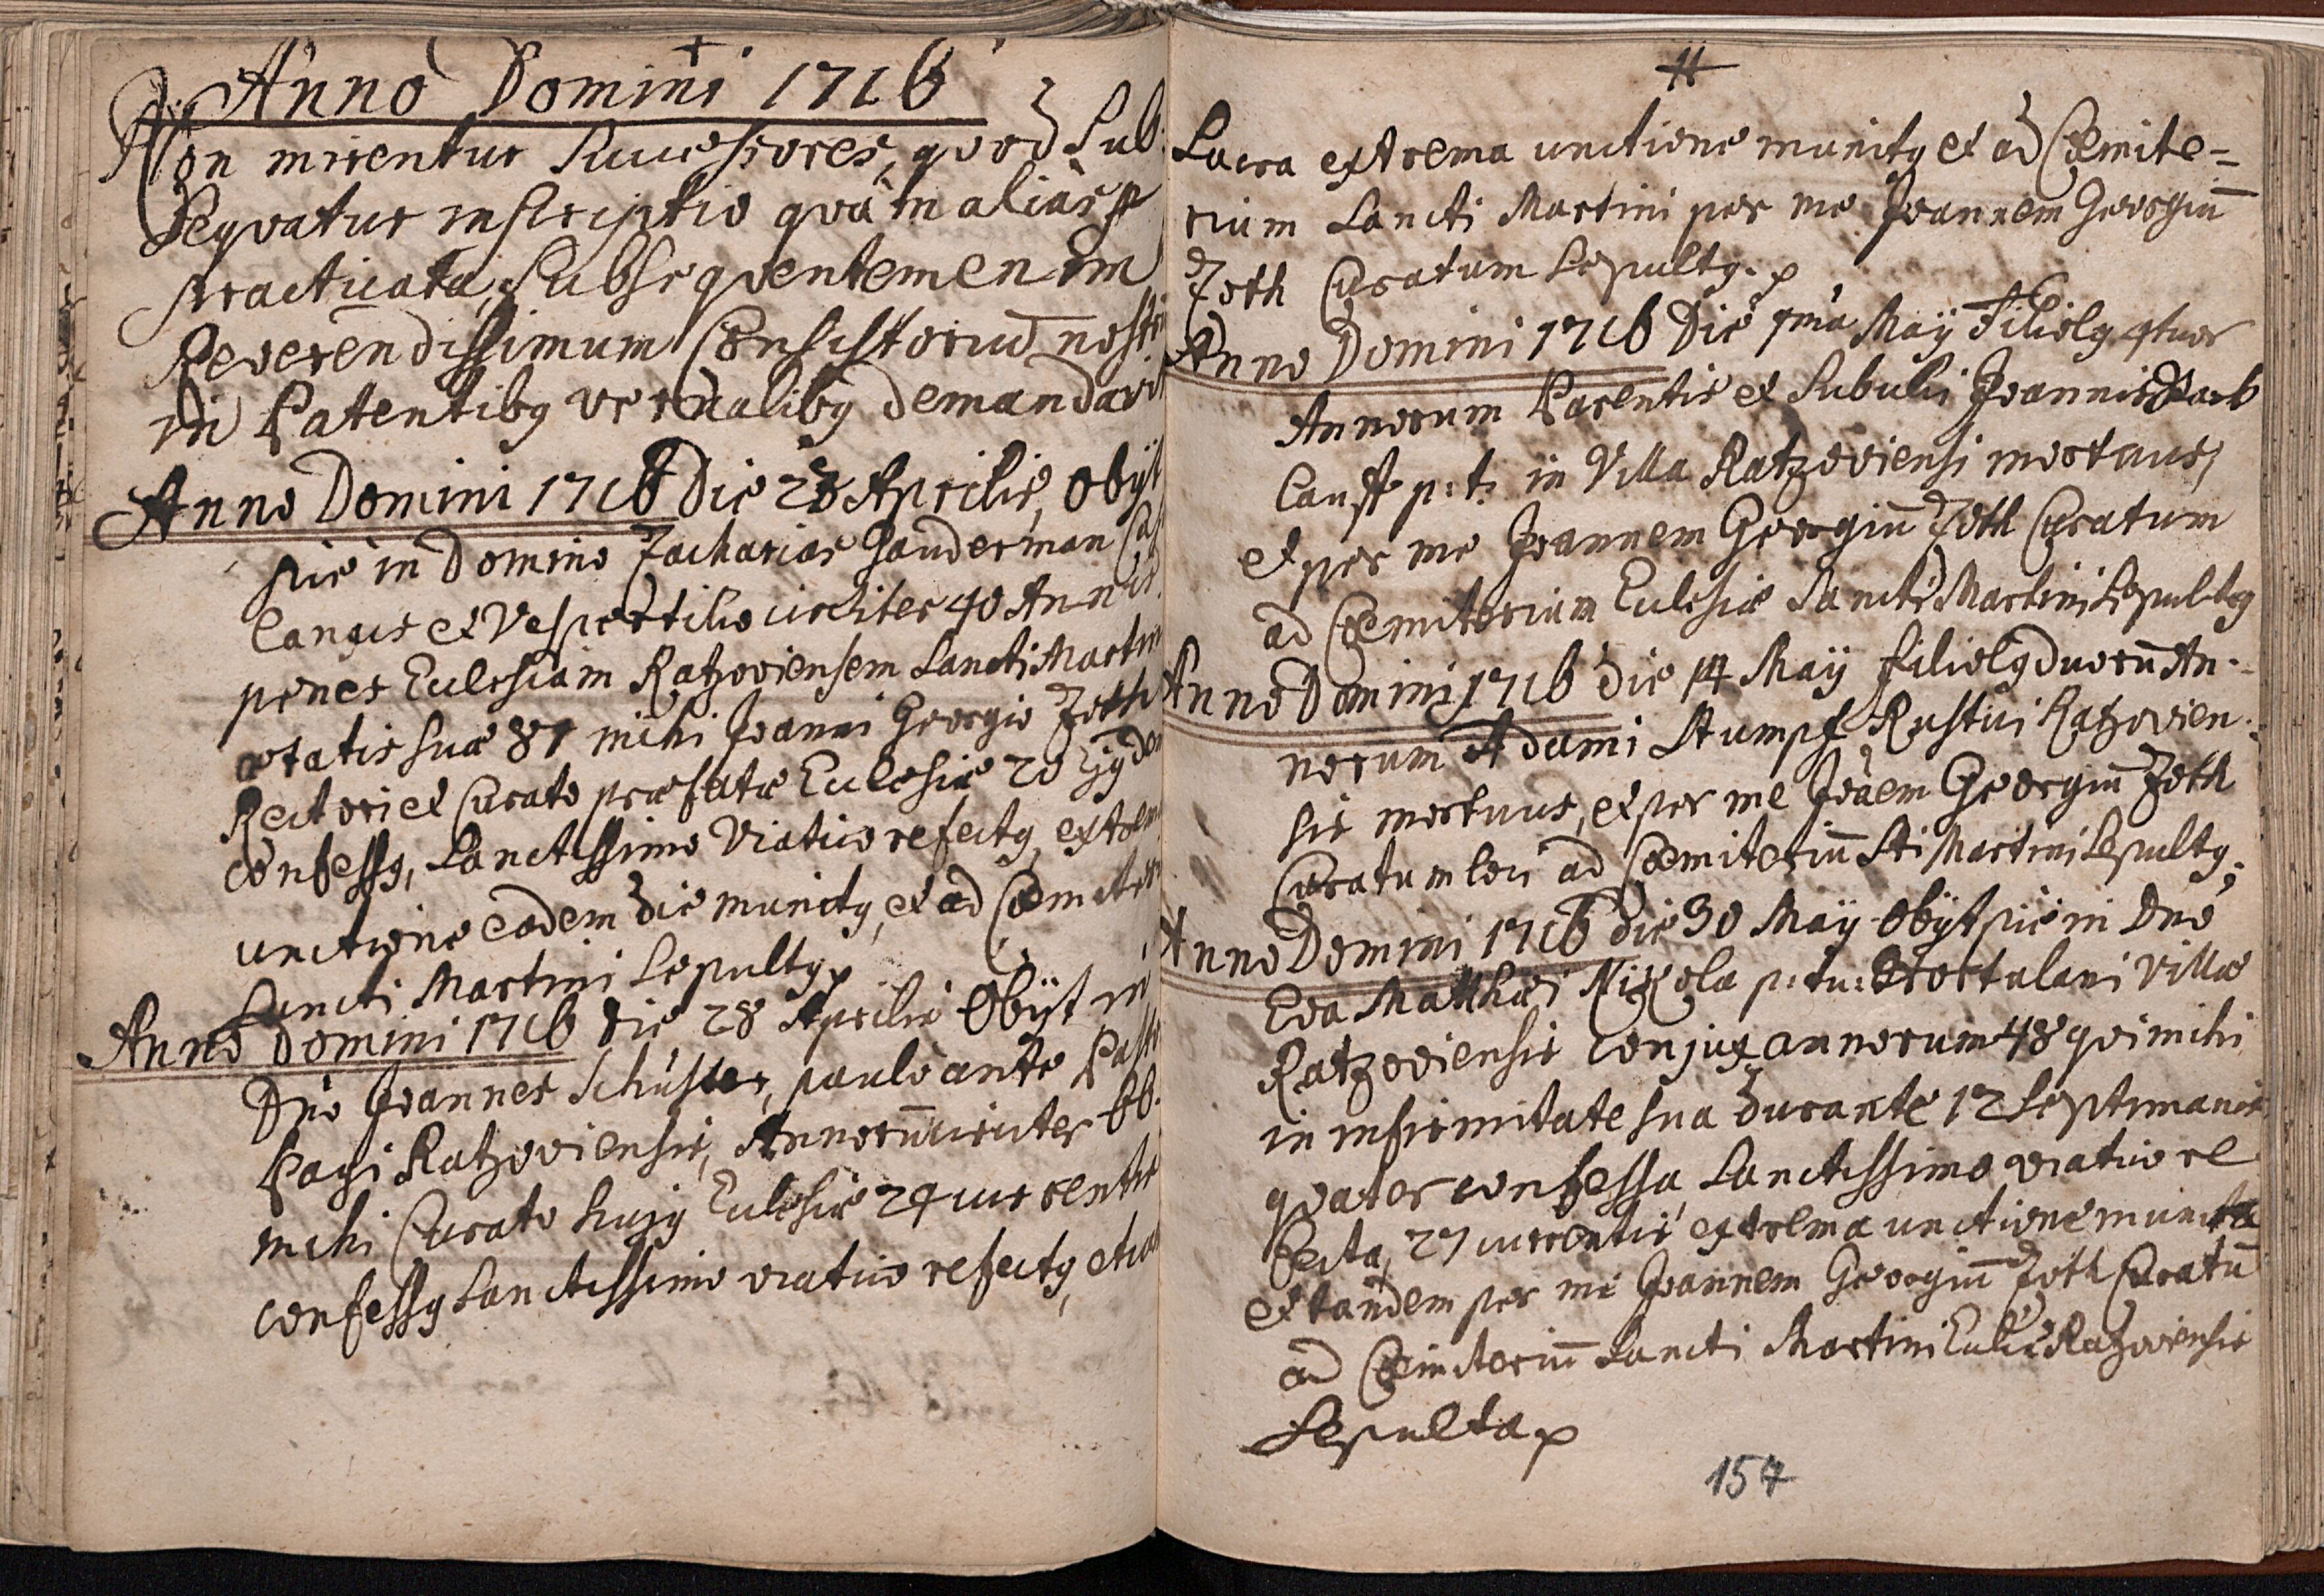 Anno Domini 1716
Non mirentur Successores, qvod Sub-
Seqvatur inscriptio qvàm aliàs p
practicata, Subseqventem enim
Reverendissimum Consistoriū nostr
in Patentibg vernalibg demandavit
Anno Domini 1716 Die 28 Aprilis, obijt
pie in Domino Zacharias Ganderman
Cangis et Vespertilio circiter 40 Annis
penes Ecclesiam Ratzoviensem Sancti Martin
ætatis suæ 81 mihi Joanni Georgio Joth
Rectori et Curato præfatæ Ecclesiæ 20 Ejgdem
confessg, Sanctissimo Viatico refectg, extrem
unctione eodem die munitg, et ad Cœmiter
Sancti Martini Sepultg
Anno Domini 1716 die 28 Aprilis Obijt in
Dno Joannes Schuster, paulo ante Past
Pagi Ratzoviensis, Annorū circiter 66.
mihi Curato hujg Ecclesiæ 24 currentis
confessg Sanctissimo viatico refectg, etia
11
Sacra extrema unctione munitg et ad Cœmite=
rium Sancti Martini per me Joannem Georgiū
Joth Curatum Sepultg.
Anno Domini 1716 Die 7ma Maÿ Filiolg qtuor
Annorum Parentis et Subulci Joannis
p: t: in Villa Ratzoviensi mortuus,
et per me Joannem Georgiū Joth Curatum
ad Cœmiterium Ecclesiæ Sancti Martini Sepultg
Anno Domini 1716 die 14 Maÿ filiolg duorū An-
norum Adami Stumpf Rustici Ratzovien-
sis mortuus, et per me Joãem Georgiū Joth
Curatum loci ad Cœmiteriū Sti Martini Sepultg.
Anno Domini 1716 die 30 Maÿ Obijt pie in Dno
Eva Matthæi Nizola p: tu: Hortulani Villæ
Ratzoviensis conjux annorum 48 qvi mihi
in infirmitate sua durante 12 Septimanis
qvater confessa, Sanctissimo viatico re
fecta, 27 currentis extrema unctione munita
et tandem per me Joannem Georgiū Joth Curatū
ad Cœmiteriū Sancti Martini Ecclæ Ratzoviensis
Sepulta
157